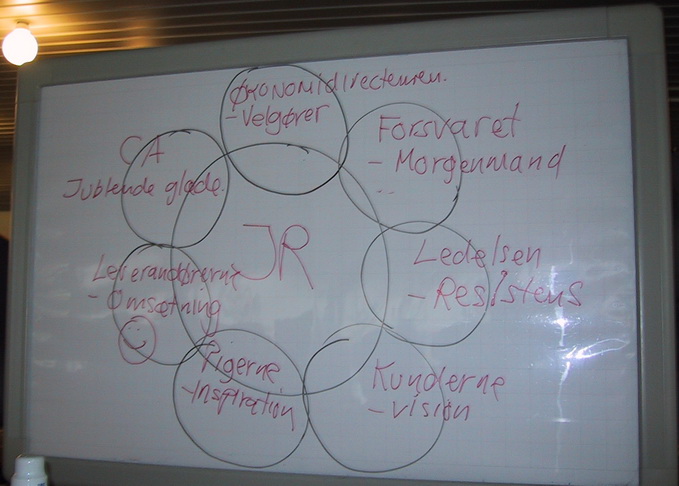 Økonomidirecteuren.
- Velgører
Forsvaret
- Morgenmand
Ledelsen
- Resistens
Kunderne
- vision
Pigerne
- Inspiration
Leveranddrerne
- Omsætning
CA
Jublende glade.
JR